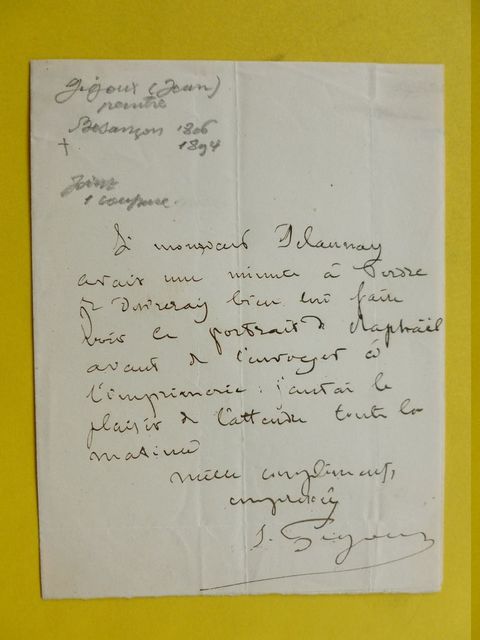 Gigoux (Jean)
peintre
Besançon 1806
† 1894
Joint
1 coupure
Si monsieur Delaunay
avait une minute à perdre
je désirerais bien lui faire
voir le portrait de Raphaël
avant de l'envoyer à
l'imprimerie : j'aurai le
plaisir de l'attendre toute la
matinée
mille compliments
empressés
J. Gigoux